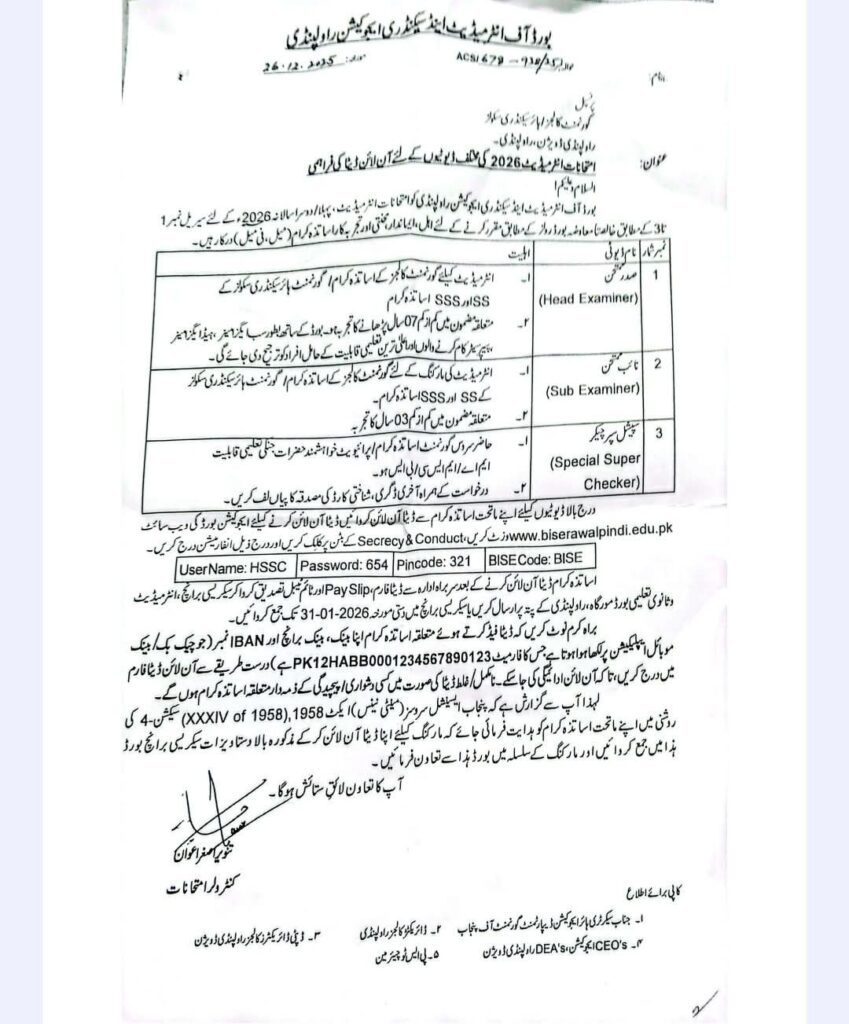 بورڈ آف انٹرمیڈیٹ اینڈ سیکنڈری ایجوکیشن راولپنڈی
ACSI 678 – 930/25
مورخہ: 26.12.2025
بنام
پرنسپل
گورنمنٹ کالجز/ہائر سیکنڈری سکولز
راولپنڈی ڈویژن، راولپنڈی۔
عنوان: امتحانات انٹرمیڈیٹ 2026 کی مختلف ڈیوٹیوں کے لئے آن لائن ڈیٹا کی فراہمی
السلام وعلیکم!
بورڈ آف انٹرمیڈیٹ اینڈ سیکنڈری ایجوکیشن راولپنڈی کو امتحانات انٹرمیڈیٹ، پہلا/دوسرا سالانہ 2026ء کے لئے سیریل نمبر 1
تا 3 کے مطابق خالصتاً معاوضہ بورڈ رولز کے مطابق مقرر کرنے کے لئے اہل، ایماندار، محنتی اور تجربہ کار اساتذہ کرام (میل، فی میل) درکار ہیں۔
نمبر شمار نام ڈیوٹی اہلیت
1 صدر ممتحن (Head Examiner)
۱۔ انٹرمیڈیٹ کیلئے گورنمنٹ کالجز کے اساتذہ کرام/گورنمنٹ ہائر سیکنڈری سکولز کے
SS اور SSS اساتذہ کرام
۲۔ متعلقہ مضمون میں کم از کم 07 سال پڑھانے کا تجربہ ہو۔ بورڈ کے ساتھ بطور سب ایگزامینر، ہیڈ ایگزامینر
، پیپر سیٹر کام کرنے والوں اور اعلیٰ ترین تعلیمی قابلیت کے حامل افراد کو ترجیح دی جائے گی۔
2 نائب ممتحن (Sub Examiner)
۱۔ انٹرمیڈیٹ کی مارکنگ کے لئے گورنمنٹ کالجز کے اساتذہ کرام/گورنمنٹ ہائر سیکنڈری سکولز
کے SS اور SSS اساتذہ کرام۔
۲۔ متعلقہ مضمون میں کم از کم 03 سال کا تجربہ
3 سپیشل سپر چیکر (Special Super Checker)
۱۔ حاضر سروس گورنمنٹ اساتذہ کرام/پرائیویٹ خواہشمند حضرات جنکی تعلیمی قابلیت
ایم اے/ایم ایس سی/بی ایس ہو۔
۲۔ درخواست کے ہمراہ آخری ڈگری، شناختی کارڈ کی مصدقہ کاپیاں لف کریں۔
درج بالا ڈیوٹیوں کیلئے اپنے ماتحت اساتذہ کرام سے ڈیٹا آن لائن کروائیں ڈیٹا آن لائن کرنے کیلئے ایجوکیشن بورڈ کی ویب سائٹ
www.biserawalpindi.edu.pk وزٹ کریں، Secrecy & Conduct کے بٹن پر کلک کریں اور درج ذیل انفارمیشن درج کریں۔
UserName: HSSC Password: 654 Pincode: 321 BISECode: BISE
اساتذہ کرام ڈیٹا آن لائن کرنے کے بعد سربراہ ادارہ سے ڈیٹا فارم، Pay Slip اور ٹائم ٹیبل تصدیق کروا کر سیکریسی برانچ، انٹرمیڈیٹ
و ثانوی تعلیمی بورڈ مورگاہ، راولپنڈی کے پتہ پر ارسال کریں یا سیکریسی برانچ میں دستی مورخہ 31-01-2026 تک جمع کروائیں۔
براہ کرم نوٹ کریں کہ ڈیٹا فیڈ کرتے ہوئے متعلقہ اساتذہ کرام اپنا بینک، بینک برانچ اور IBAN نمبر (جو چیک بک/بینک
موبائل ایپلیکیشن پر لکھا ہوا ہوتا ہے جس کا فارمیٹ PK12HABB0001234567890123 ہے) درست طریقے سے آن لائن ڈیٹا فارم
میں درج کریں، تاکہ آن لائن ادائیگی کی جا سکے۔ نامکمل/غلط ڈیٹا کی صورت میں کسی دشواری/پیچیدگی کے ذمہ دار متعلقہ اساتذہ کرام ہوں گے۔
لہذا آپ سے گزارش ہے کہ پنجاب ایسینشل سروسز (مینٹی نینس) ایکٹ 1958، (XXXIV of 1958) سیکشن-4 کی
روشنی میں اپنے ماتحت اساتذہ کرام کو ہدایت فرمائی جائے کہ مارکنگ کیلئے اپنا ڈیٹا آن لائن کر کے مذکورہ بالا دستاویزات سیکریسی برانچ بورڈ
ہذا میں جمع کروائیں اور مارکنگ کے سلسلہ میں بورڈ ہذا سے تعاون فرمائیں۔
آپ کا تعاون لائق ستائش ہوگا۔
تنویر اصغر اعوان
کنٹرولر امتحانات
کاپی برائے اطلاع
۱۔ جناب سیکرٹری ہائر ایجوکیشن ڈیپارٹمنٹ گورنمنٹ آف پنجاب ۲۔ ڈائریکٹر کالجز راولپنڈی ۳۔ ڈپٹی ڈائریکٹرز کالجز راولپنڈی ڈویژن
۴۔ CEO's ایجوکیشن، DEA's راولپنڈی ڈویژن ۵۔ پی ایس ٹو چیئرمین